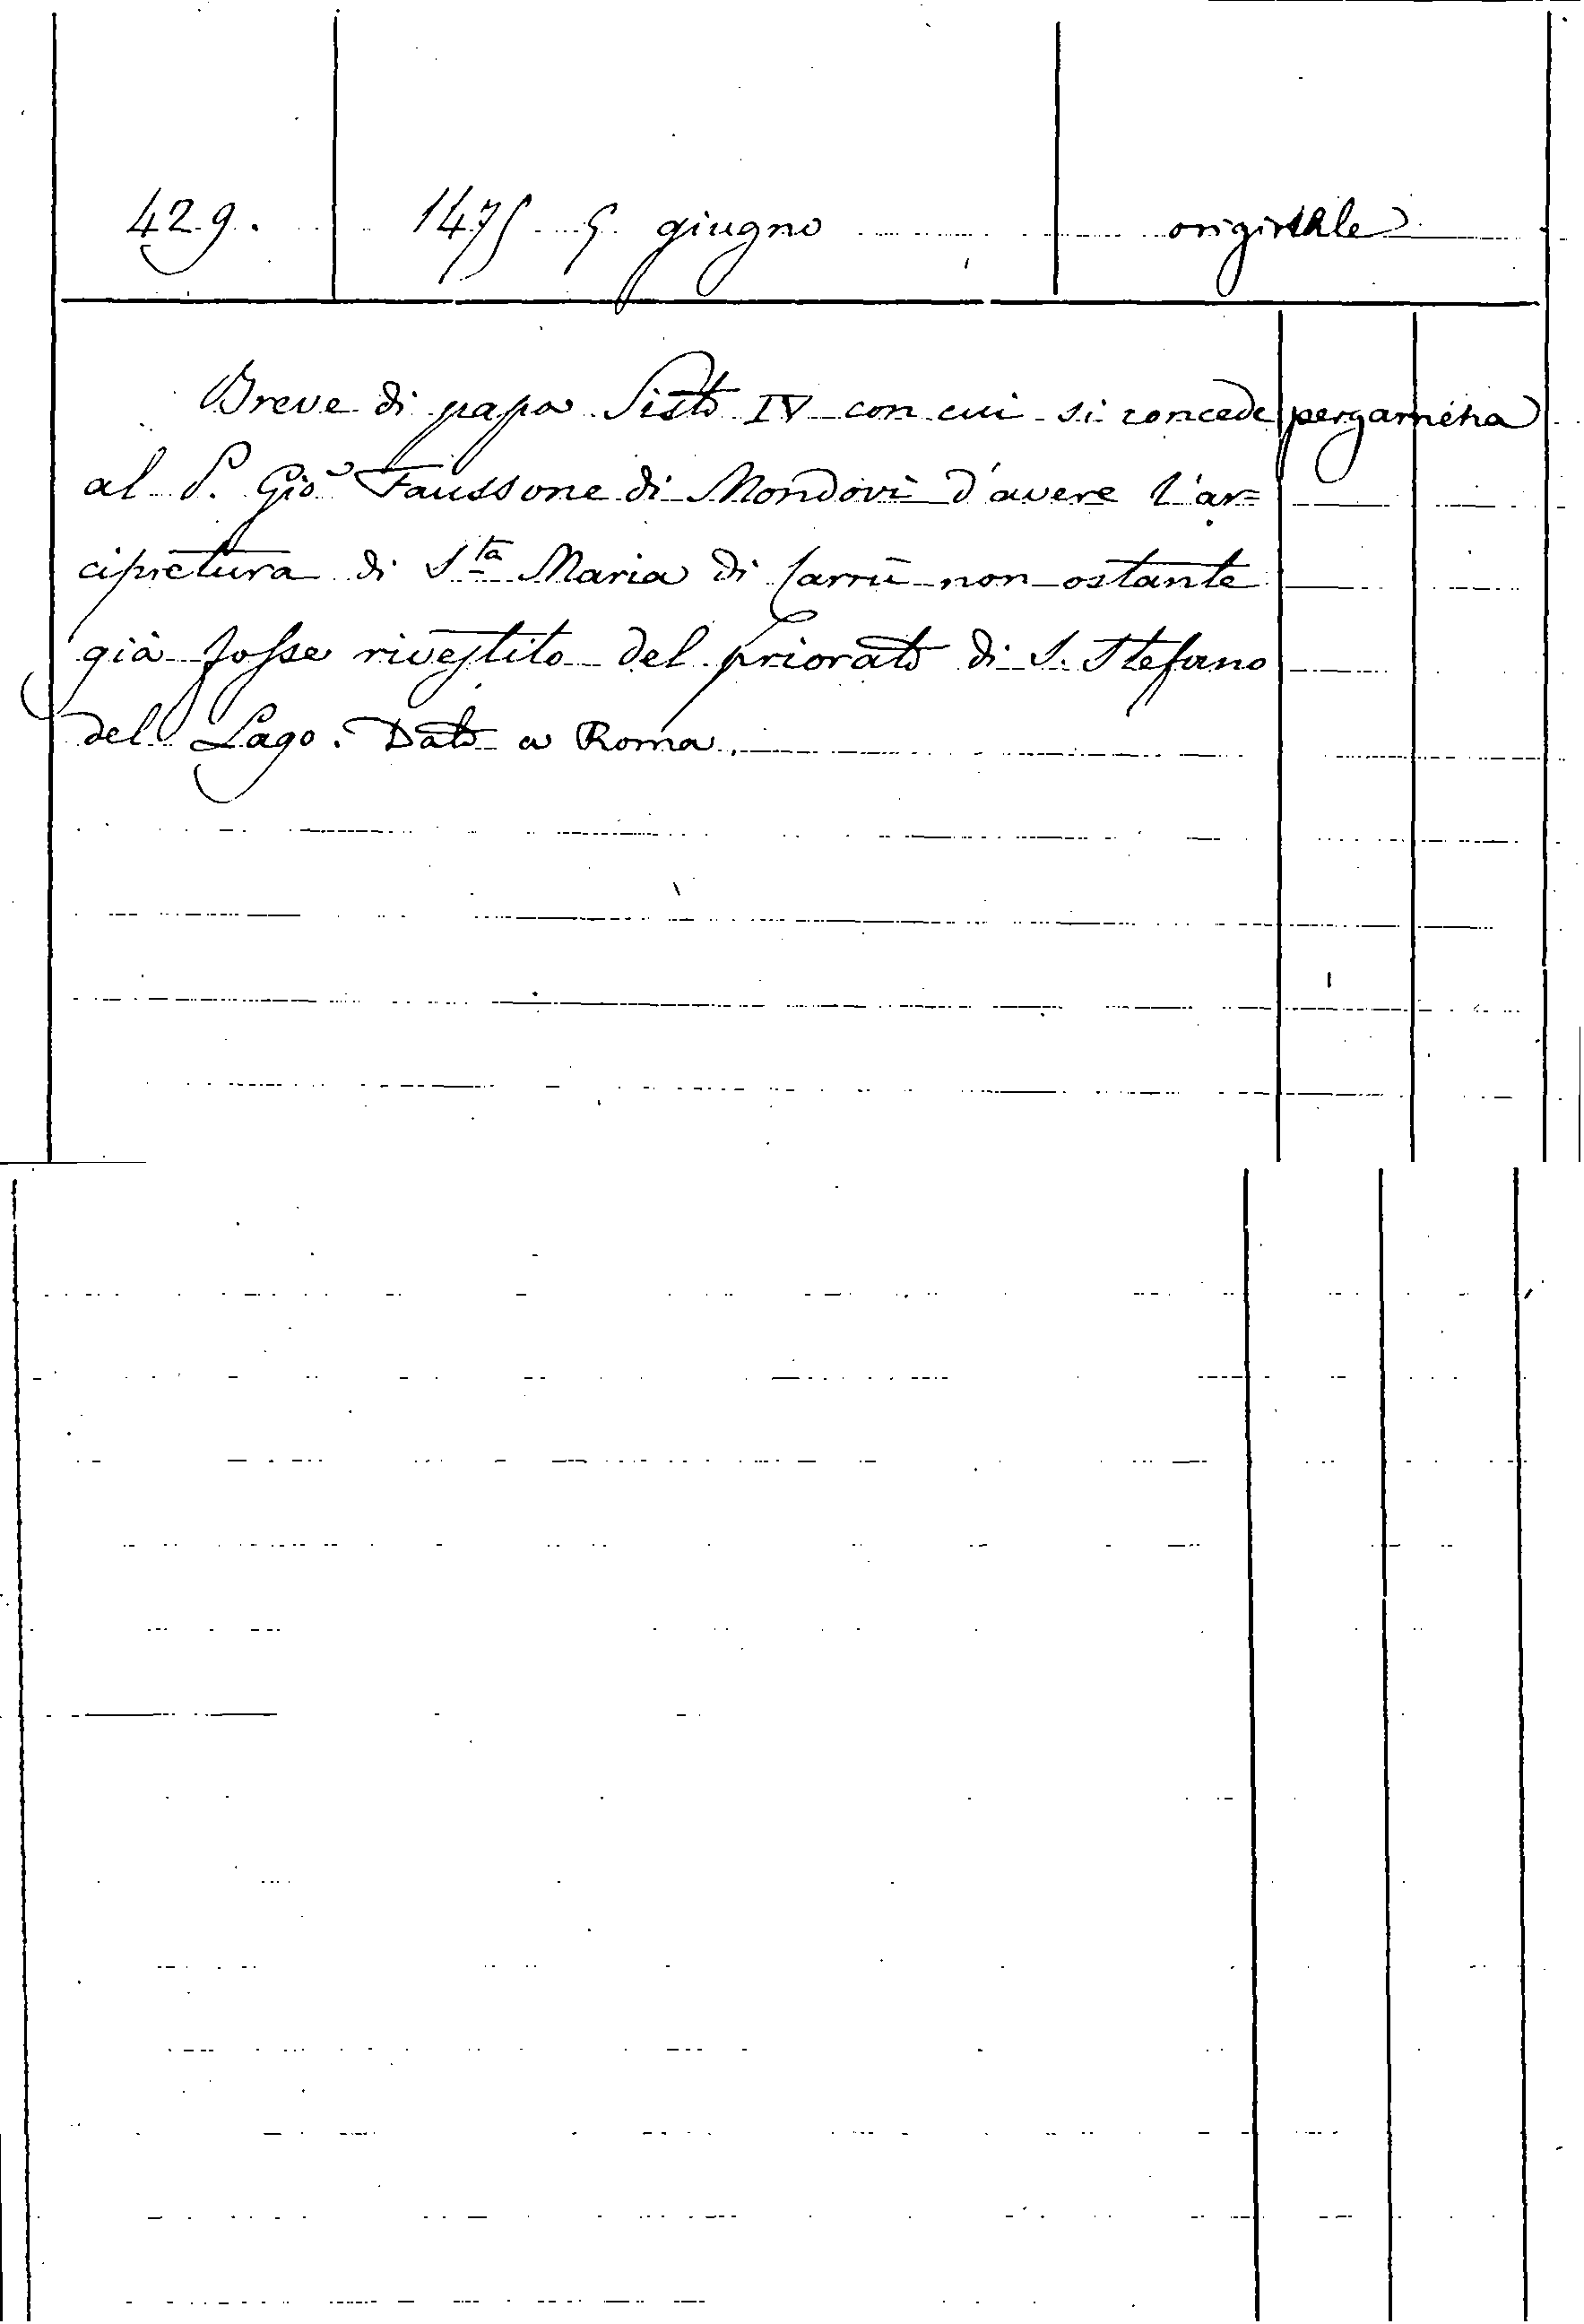 429. 1475 5 giugno originale
Breve di papa Sisto IV con cui si concede pergamena
al S. Gio Faussone di Mondovì d'avere l'ar=
cipretura di S.ta Maria di Carrù non ostante
già fosse rivestito del priorato di S. Stefano
del Lago. Dato a Roma.